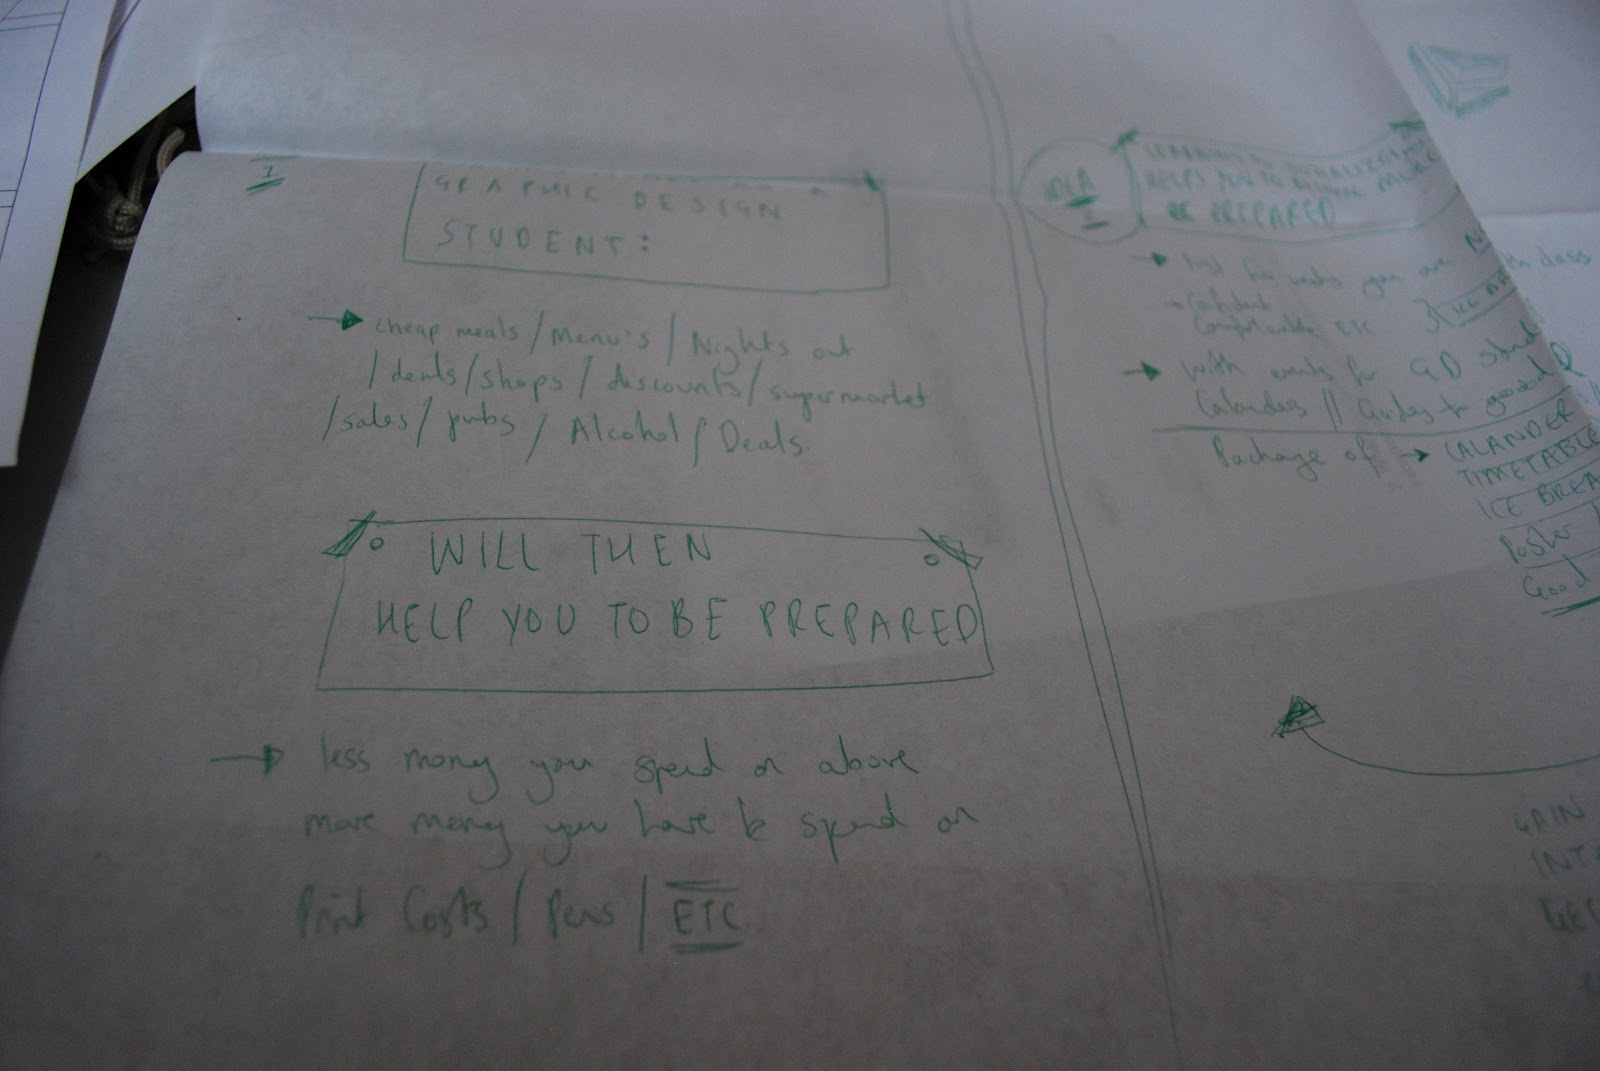 1
GRAPHIC DESIGN
STUDENT:
cheap meals / Menu's / Nights out
/ deals / shops / discounts / supermarket
/ sales / pubs / Alcohol / Deals.
WILL THEN
HELP YOU TO BE PREPARED
less money you spend on above
more money you have to spend on
Print Costs / Pens / ETC
HELPS YOU TO
BE PREPARED
first few weeks you are
Confident
Comfortable ETC
with events for GD
Calanders // Guides to good
Package of → CALANDER
TIMETABLE
ICE BREA
Poster
Good
GAIN
INT